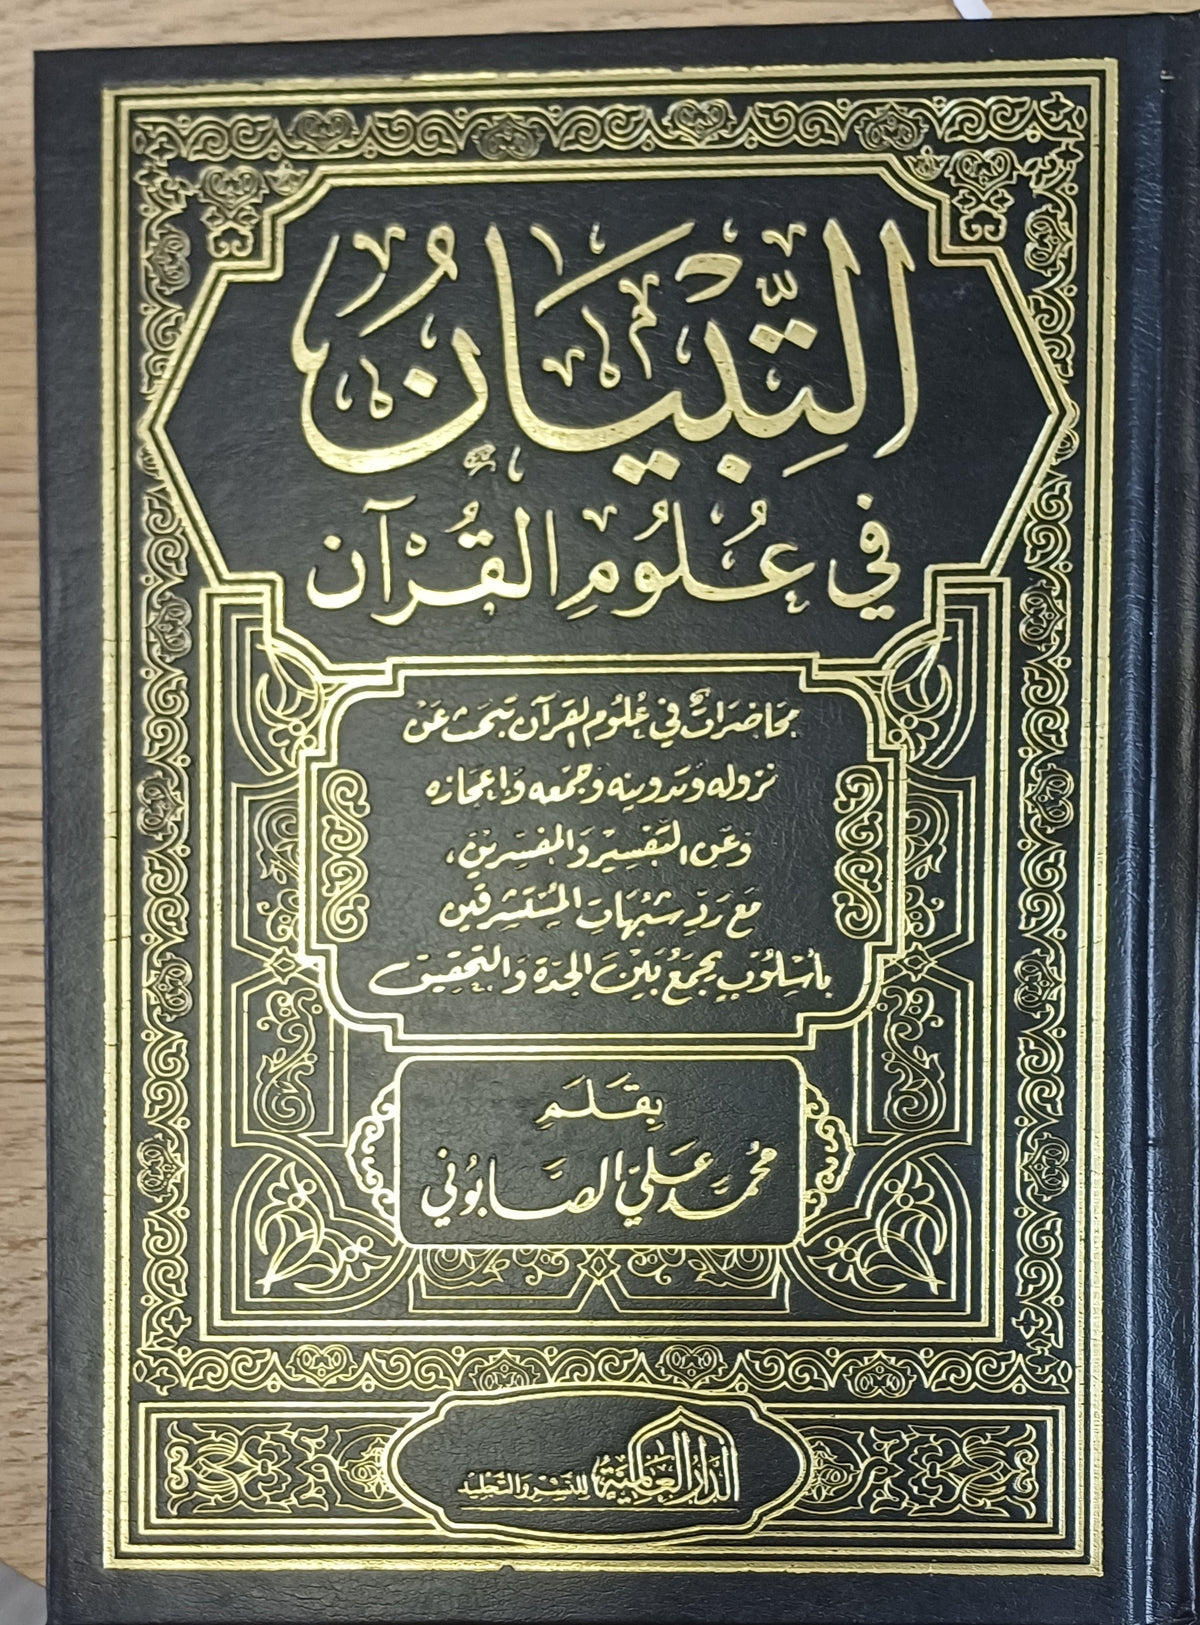 التِّبْيَانُ
في عُلُومِ القُرْآن
محَاضرَاتٌ في عُلُوم القرآن تبحَث عَنْ
نزوله وتدوينه وجمْعه وَإعجازه
وَعَن التفسِيْر وَالمفسِّرينَ،
مَع رَدِّ شبُهَات المُسْتشرِقين
بأسْلوُبٍ يجمَعُ بَيْنَ الجدّة وَالتحقِيق
بِقَلَمِ
محُمَّد عَلي الصَّابوُني
الدَّارُ العَالميَّةُ للنَّشْرِ وَالتَّجْليد